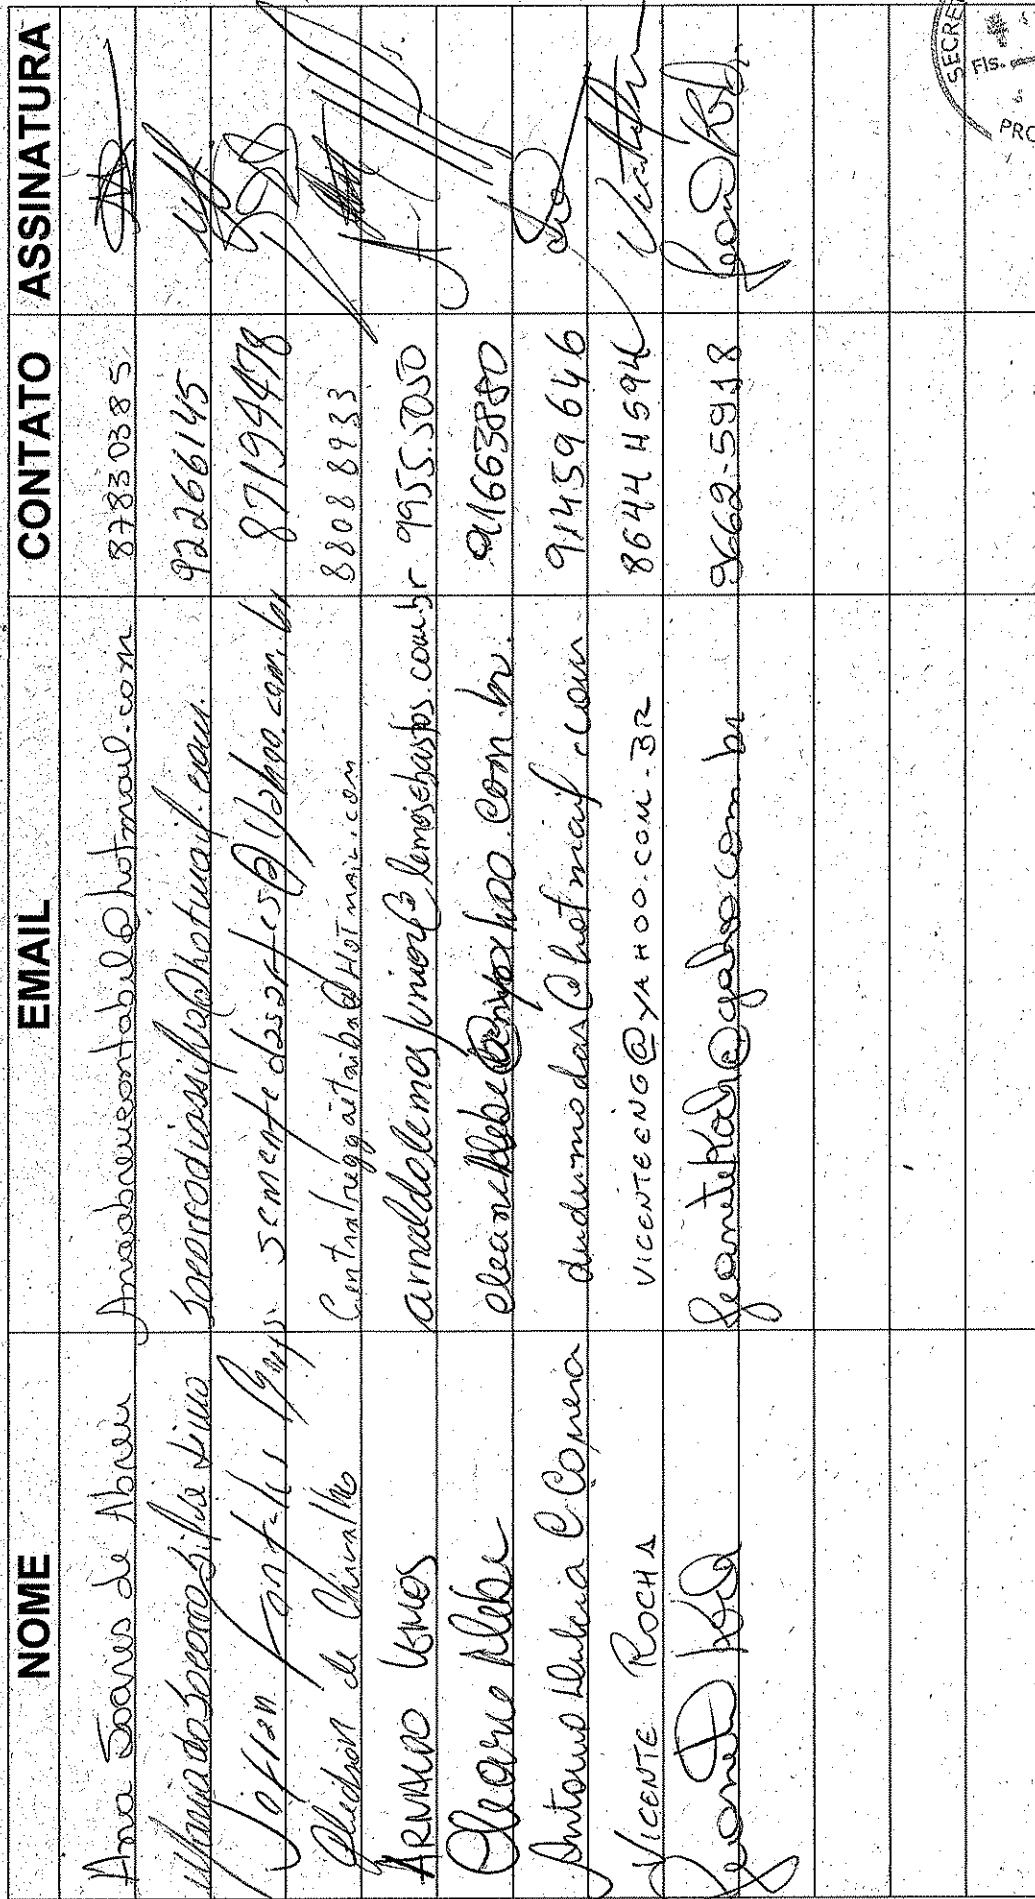 NOME EMAIL CONTATO ASSINATURA
Ana Soares de Abreu Anasabreucontabil@hotmail.com 87830385
Maria do Socorro Silva Lima Socorrodiassilva@hotmail.com. 92266145
Joffran Fontelis semente dasartes@yahoo.com.br 87194478
de Carvalho @Hotmail.com 8808 8933
ARNALDO LEMOS arnaldolemosjunior@lemosebastos.com.br 9955.5050
Cleane Klebe yahoo.com.br. 91663880
Antonio C. Correia dudumodas@hotmail.com 91459646
VICENTE ROCHA VICENTEENG@YAHOO.COM.BR 8644 4594
9662-5918
SECRE
FIS.
PRO